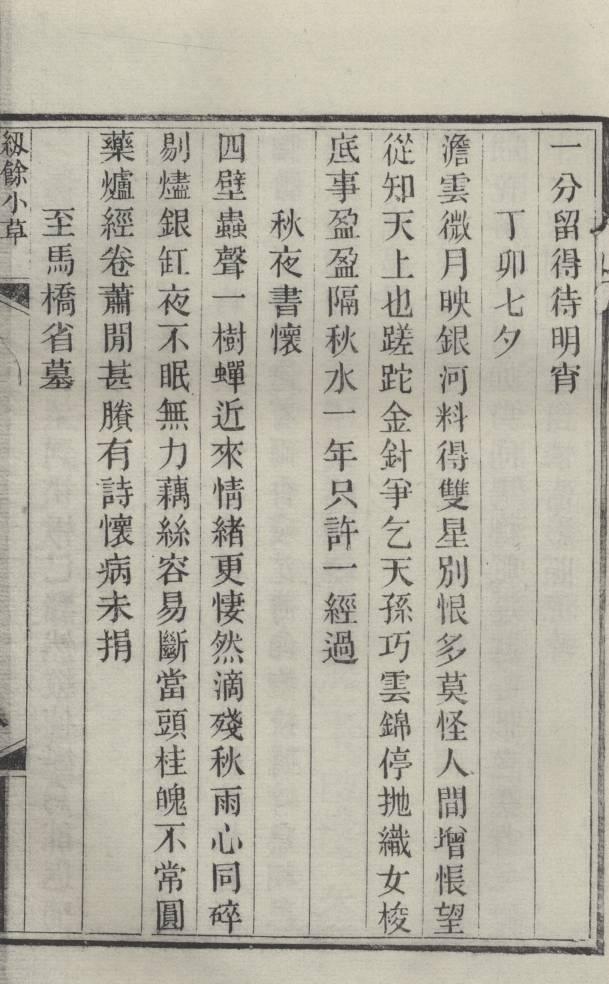 一分留得待明宵
丁卯七夕
澹雲微月映銀河料得雙星別恨多莫怪人間增悵望
從知天上也蹉跎金針爭乞天孫巧雲錦停拋織女梭
底事盈盈隔秋水一年只許一經過
秋夜書懷
四壁蟲聲一樹蟬近來情緒更悽然滴殘秋雨心同碎
剔燼銀缸夜不眠無力藕絲容易斷當頭桂魄不常圓
藥爐經卷蕭閒甚賸有詩懷病未捐
至馬橋省墓
紉餘小草